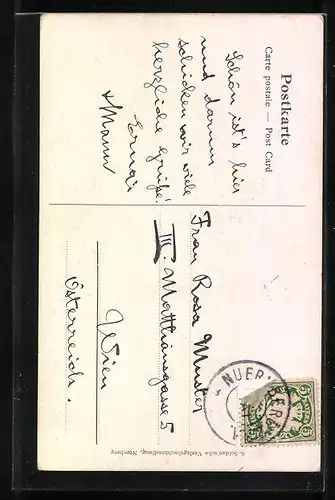 Postkarte
Carte postale — Post Card
Schön ist's hier
und darum
schicken wir viele
herzliche Grüße!
Erna
+ Mann
Frau Rosa Muster
III. Matthäusgasse 5
Wien
Österreich.
S. Soldan'sche Verlagsbuchhandlung, Nürnberg
NUER
5
5